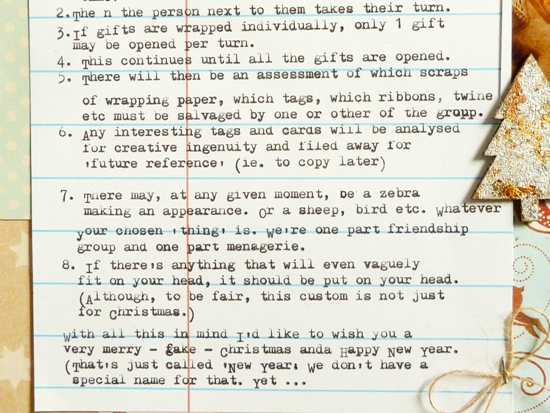 2.The n the person next to them takes their turn.
3.If gifts are wrapped individually, only 1 gift
may be opened per turn.
4. This continues until all the gifts are opened.
5. There will then be an assessment of which scraps
of wrapping paper, which tags, which ribbons, twine
etc must be salvaged by one or other of the group.
6. Any interesting tags and cards will be analysed
for creative ingenuity and filed away for
'future reference' (ie. to copy later)
7. There may, at any given moment, be a zebra
making an appearance. Or a sheep, bird etc. Whatever
your chosen 'thing' is. We're one part friendship
group and one part menagerie.
8. If there's anything that will even vaguely
fit on your head, it should be put on your head.
(Although, to be fair, this custom is not just
for Christmas.)
With all this in mind I'd like to wish you a
very merry - fake - Christmas anda Happy New Year.
(That's just called 'New Year' We don't have a
special name for that. Yet ...